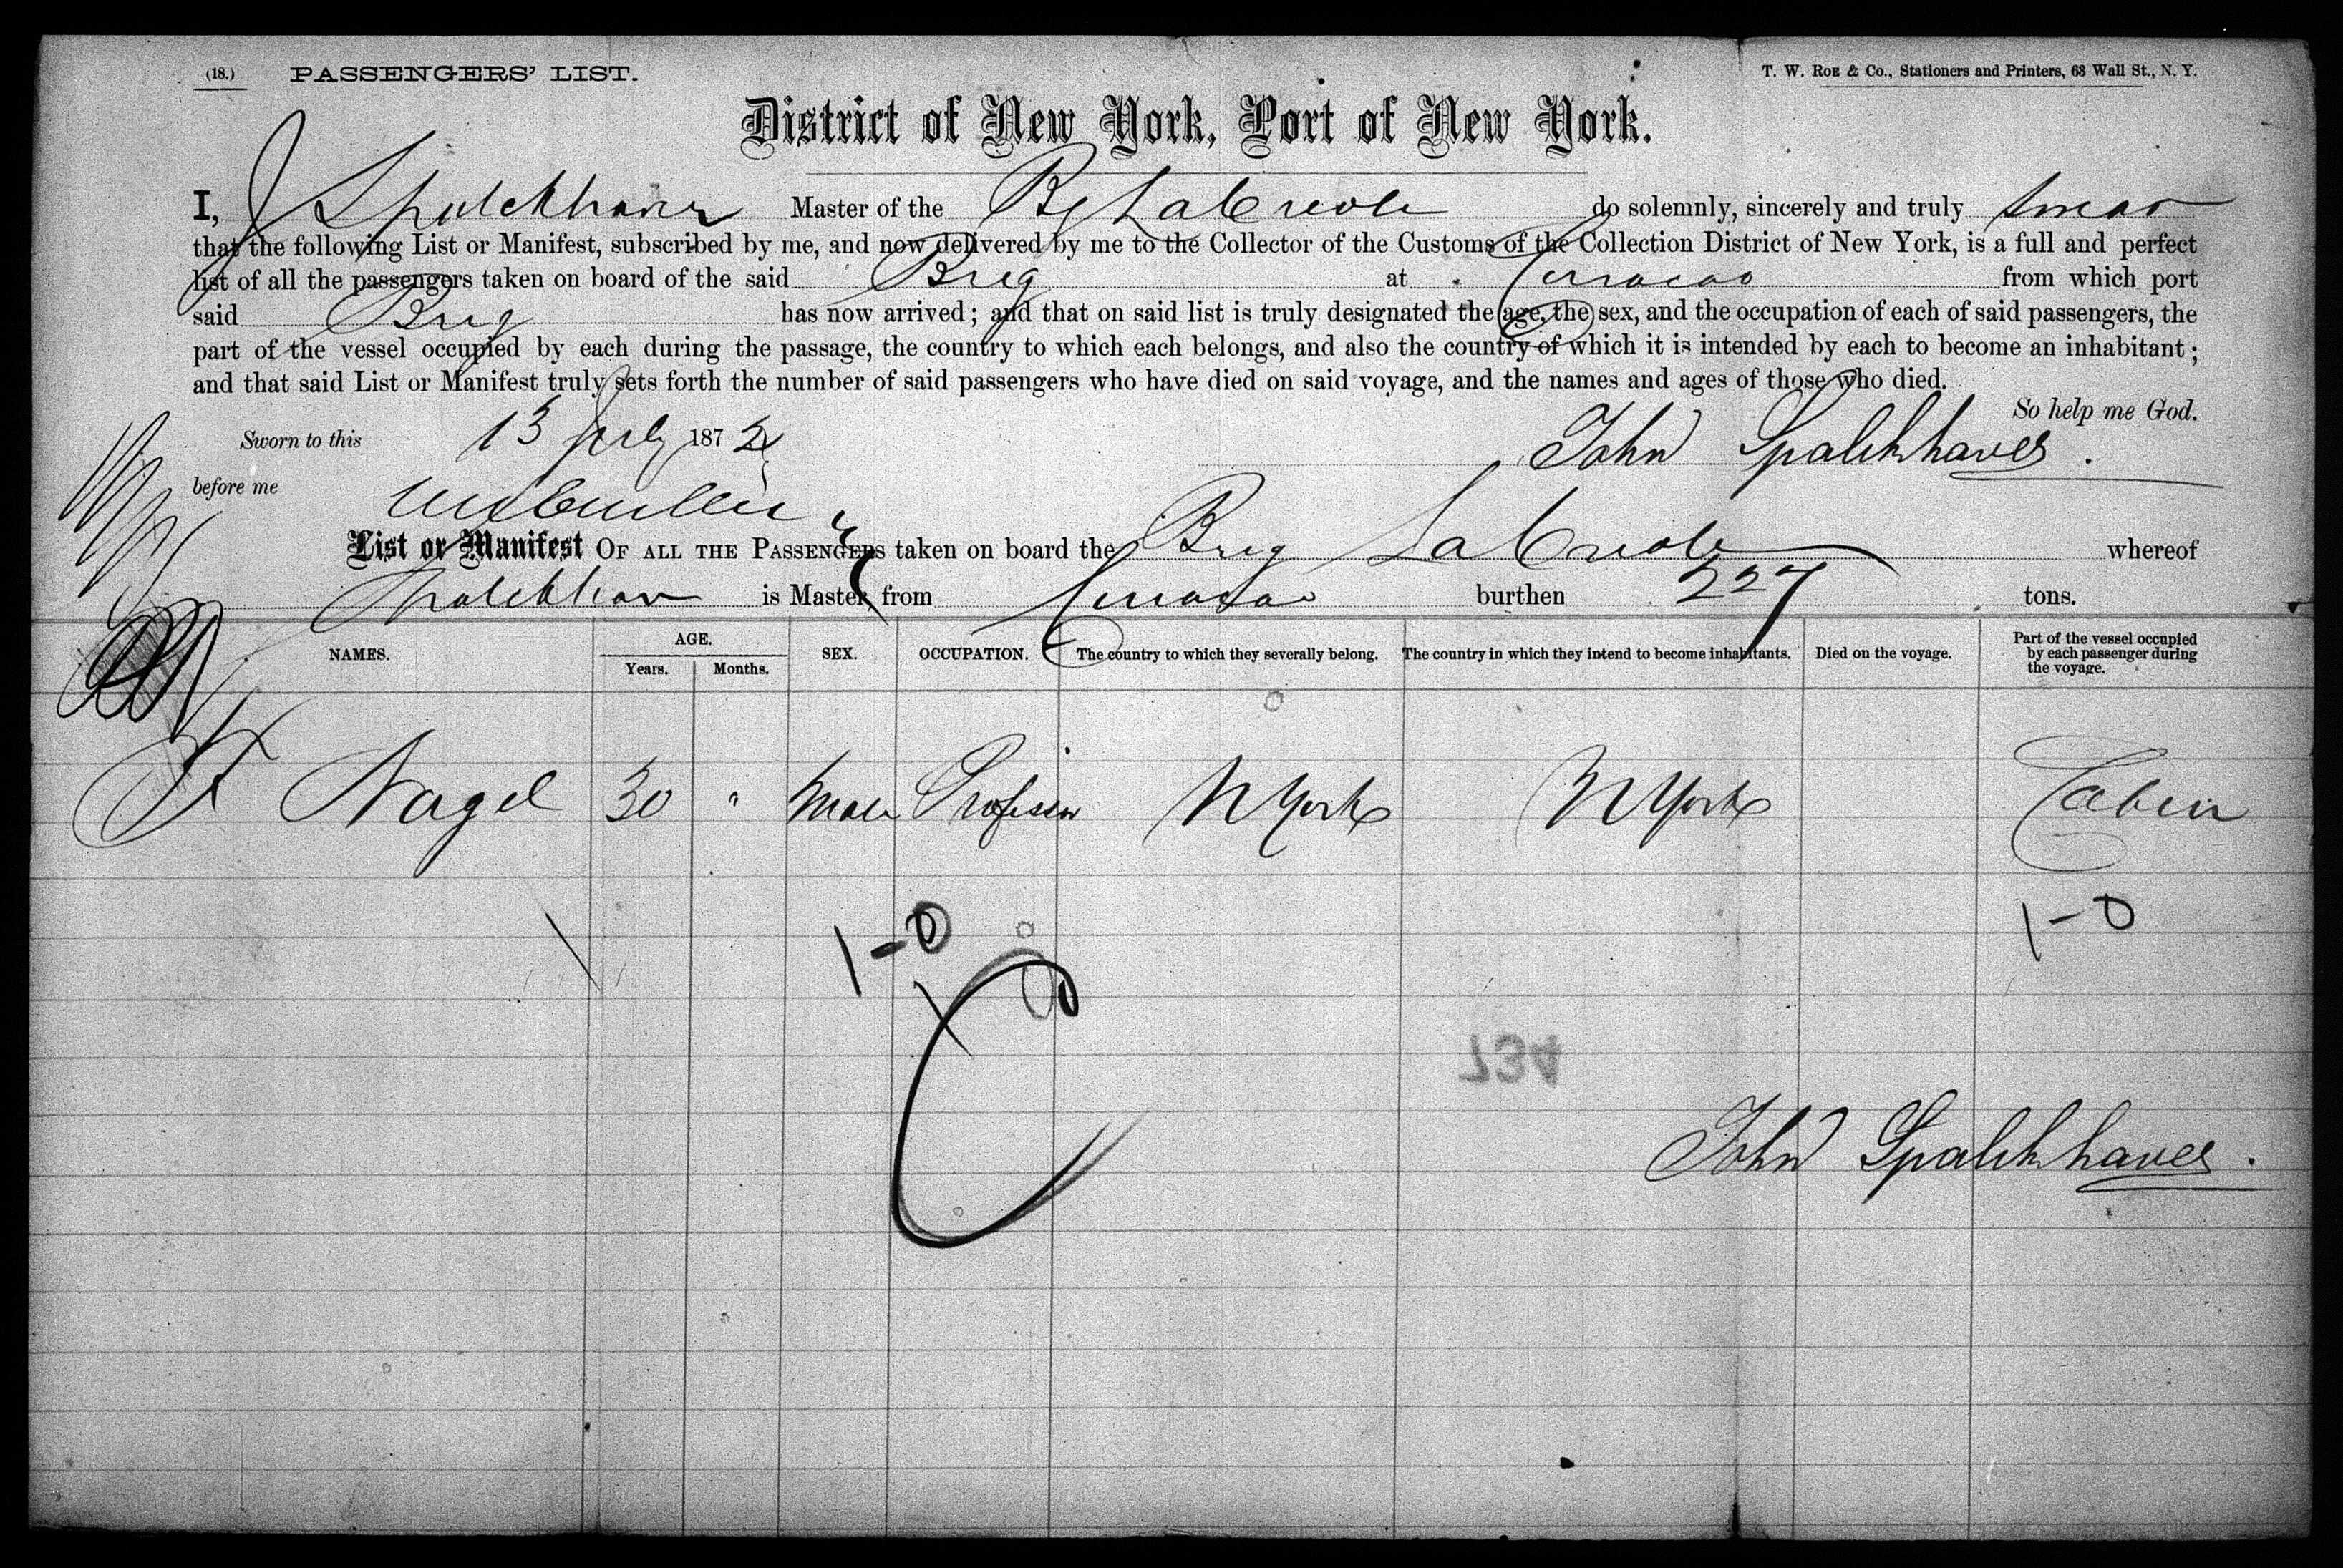 (18.) PASSENGERS' LIST.
T. W. ROE & CO., Stationers and Printers, 63 Wall St., N. Y.
District of New York, Port of New York.
I, J Spalckhaver Master of the Bg La Creole do solemnly, sincerely and truly swear
that the following List or Manifest, subscribed by me, and now delivered by me to the Collector of the Customs of the Collection District of New York, is a full and perfect
list of all the passengers taken on board of the said Brig at Curacao from which port
said Brig has now arrived; and that on said list is truly designated the age, the sex, and the occupation of each of said passengers, the
part of the vessel occupied by each during the passage, the country to which each belongs, and also the country of which it is intended by each to become an inhabitant;
and that said List or Manifest truly sets forth the number of said passengers who have died on said voyage, and the names and ages of those who died.
So help me God.
Sworn to this 13 July 1872
John Spalckhaver.
before me
List or Manifest OF ALL THE PASSENGERS taken on board the Brig La Creole whereof
Spalckhaver is Master, from Curacao burthen 227 tons.
NAMES. AGE. Years. Months. SEX. OCCUPATION. The country to which they severally belong. The country in which they intend to become inhabitants. Died on the voyage. Part of the vessel occupied by each passenger during the voyage.
F Nagel 30 " Male Professor N York N York Cabin
1-0 1-0
734
John Spalckhaver.